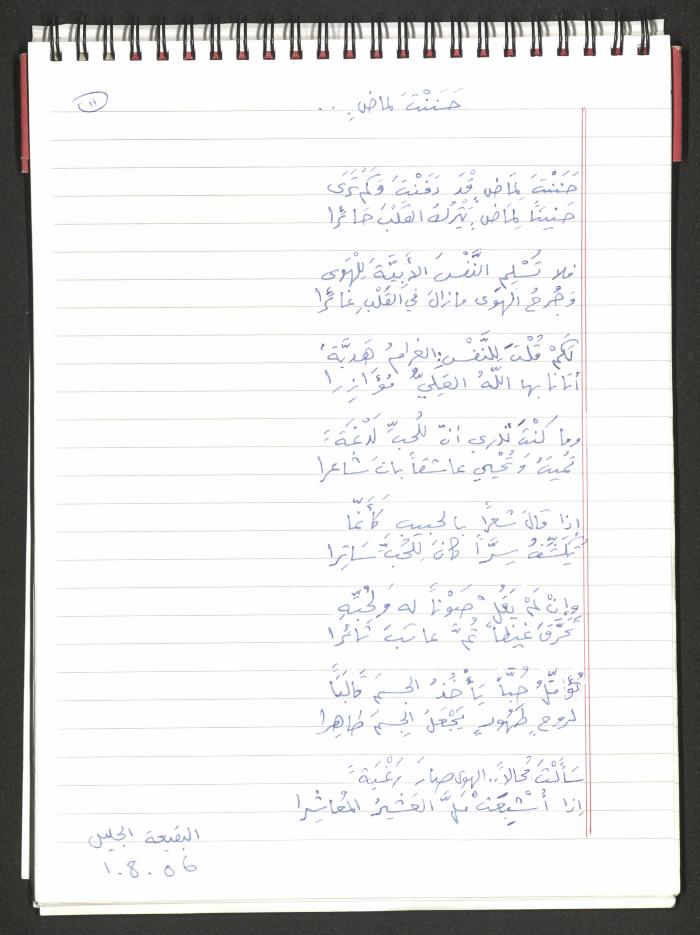 ١١
حَنَنْتَ لماضٍ . . .
حَنَنْتَ لِمَاضٍ قَدْ دَفَنْتَ وَكَمْ تَرَى
حَنِيْنَاً لِمَاضٍ يَتْرُكُ القَلْبَ حَائِرا
فلا تُسْلِمِ النَّفْسَ الأَبِيَّةَ لِلْهَوى
وَجُرحُ الهَوَى مازالَ في القَلْبِ غَائِرا
لَكَمْ قُلْتَ لِلنَّفْسِ: الغرامُ هَدِيَّةٌ
أتانا بها اللّهُ العَلِيُّ مُؤَازِرا
وما كُنْتَ تدري انّ للحُبِّ لَدْغَةً
تُمِيْتُ وَتُحْيِي عاشقاً باتَ شاعرا
إذا قالَ شعراً بالحبيبِ كَأَنَّما
يُكَشِّفُ سِرَّاً كانَ لِلحُبِّ سَاتِرا
وإِنْ لَمْ يَقُلْ صَوْناً له ولحُبِّهِ
تَحَرَّقَ غَيْظاً ثُمَّ عاتَبَ ثائرا
تُؤَمِّلُ حُبَّاً يَأْخُذُ الجسمَ قَالَبَاً
لروحٍ طَهُورٍ يَجْعَلُ الجِسمَ طاهِرا
سَأَلْتَ مُحالاً.. الهوى صارَ رَغْبَةً
إذا أُشْبِعَتْ مَلَّ العَشيرُ المُعَاشِرا
البقيعة الجليل
١.٨.٥٦